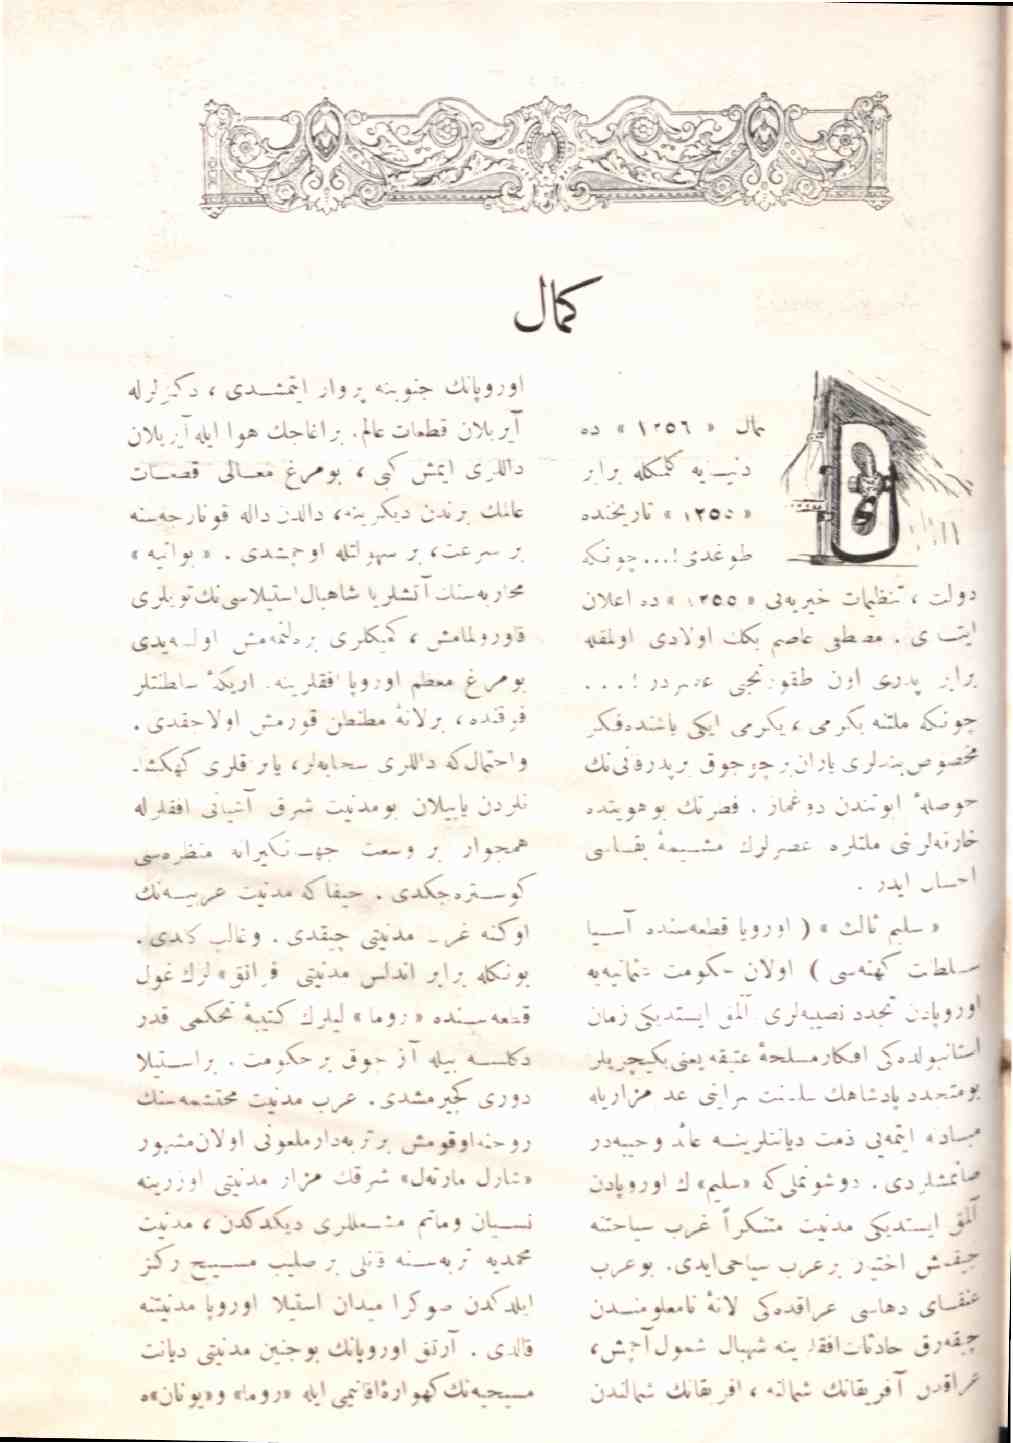 كمال
كمال « ١٢٥٦ » ده
دنيايه كلمكله برابر
« ١٢٥٥ » تاريخنده
طوغدى!... چونكه
دولت ، تنظيمات خيريه‌يى « ١٢٥٥ » ده اعلان
ايتدى . مصطفى عاصم بكك اولادى اولمقله
برابر پدرى اون طقوزنجى عصردر !...
چونكه ملتنه يكرمى ، يكرمى ايكى ياشنده فكر
مخصوص بنديلرى ياران بر چوجوق بر پدر فانى‌نك
حوصلهٔ ابوتندن دوغماز . فطرتك بو هويتده
خارقه‌لرنى ملتلره عصرلرك مشيمهٔ بقاسى
احسان ايدر .
« سليم ثالث » ( اوروپا قطعه‌سنده آسيا
سلطنت كهنه‌سى ) اولان حكومت عثمانيه‌يه
اوروپادن تجدد نصيبه‌لرى آلمق ايستديكى زمان
استانبولده‌كى افكار مسلحهٔ عتيقه يعنى يكيچريلر
بو متجدد پادشاهك سلطنت سراينى عد مزاريله
مبادله ايتمه‌يى ذمت ديانتلرينه عائد وجيبه‌در
صانمشلردى . دوشونملى كه «سليم» ك اوروپادن
آلمق ايستديكى مدنيت متنكراً غرب سياحتنه
چيقمش اختيار بر عرب سياحى ايدى . بو عرب
عنقاى دهاسى عراقده‌كى لانهٔ نامعلومندن
چيقه‌رق حادثات افقلرينه شهبال شمول آچمش،
عراقدن آفريقانك شمالنه ، افريقانك شمالندن
اوروپانك جنوبنه پرواز ايتمشدى ، دكزلرله
آيريلان قطعات عالم. بر اغاجك هوا ايله آيريلان
داللرى ايمش كبى ، بو مرغ معالى قطعات
عالمك برندن ديكرينه، دالدن داله قونارجه‌سنه
بر سرعت، بر سهولتله اوچمشدى . « پواتيه »
محاربه‌سنك آتشلريا شاهبال استيلاسى‌نك تويلرى
قاورولمامش ، كميكلرى بره‌لنمه‌مش اولسه‌يدى
بو مرغ معظم اوروپا افقلرينه. اريكهٔ سلطنتلر
فوقنده ، بر لانهٔ مطنطن قورمش اولاجقدى .
واحتمال كه داللرى سحابه‌لر، ياپراقلرى كهكشا.
نلردن ياپيلان بو مدنيت شرق آشيانى افقلرله
همجوار بر وسعت جهانگيرانه منظره‌سى
كوستره‌جكدى . حيفا كه مدنيت عربيه‌نك
اوكنه غرب مدنيتى چيقدى . وغالب كلدى.
بونكله برابر اندلس مدنيتى فرانق» لرك غول
قطعه‌سنده «روما» ليلرك كتيبهٔ تحكمى قدر
دكلسه بيله آز چوق بر حكومت . بر استيلا
دورى كچيرمشدى. عرب مدنيت محتشمه‌سنك
روحنه اوقومش بر تربه‌دار ملعونى اولان مشهور
«شارل مارتل» شرقك مزار مدنيتى اوزرينه
نسيان وماتم مشعللرى ديكدكدن ، مدنيت
محمديه تربه‌سنه قانلى بر صليب مسيح ركز
ايلدكدن صوكرا ميدان استيلا اوروپا مدنيتنه
قالدى . آرتق اوروپانك بو جنين مدنيتى ديانت
مسيحيه‌نك كهوارهٔ اقانيمى ايله «روما» و«يونان»ه